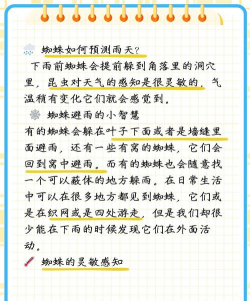 蜘蛛如何预测雨天?
下雨前蜘蛛会提前躲到角落里的洞穴
里,昆虫对天气的感知是很灵敏的。气
温稍有变化它们就会感觉到。
蜘蛛避雨的小智慧
有的蜘蛛会躲在叶子下面或者是墙缝里
面避雨,还有一些有窝的蜘蛛,它们会
回到窝中避雨。而有的蜘蛛也会随意找
一个可以蔽体的地方躲雨。在日常生活
中可以在很多地方都见到蜘蛛,它们或
是在织网或是四处游走,但是我们却很
少能在下雨的时候发现它们在外面活
动。
蜘蛛的灵敏感知